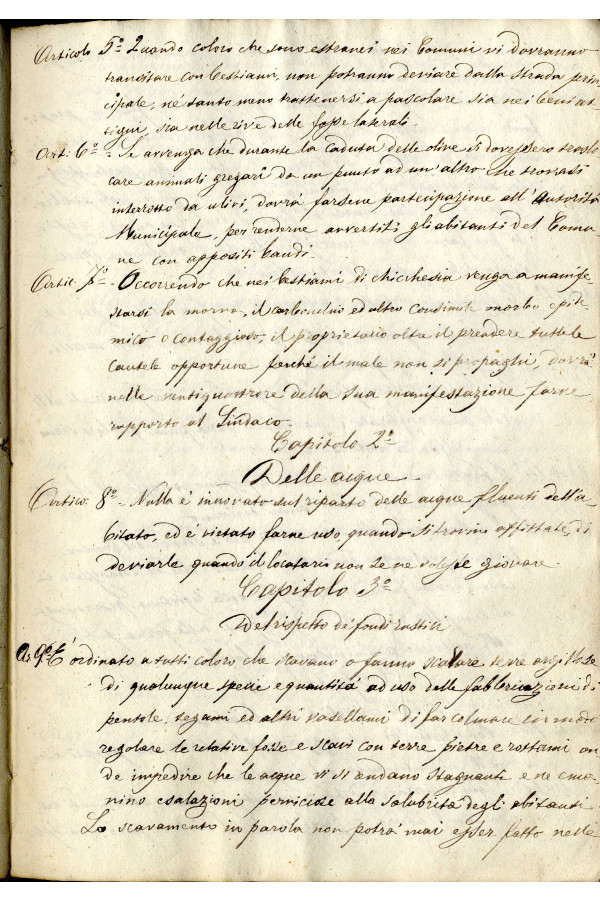 Articolo 5º Quando coloro che sono estranei nei Comuni vi dovranno
transitare con bestiami, non potranno deviare dalla strada prin
cipale, né tanto meno trattenersi a pascolare sia nei beni at
tigui, sia nelle rive delle fosse laterali
Art: 6º - Se avvenga che durante la caduta delle olive si dovessero traslo
care animali gregari da un punto ad un'altro che trovasi
interrotto da ulivi, dovrà farsene partecipazione all'Autorità
Municipale, per renderne avvertiti gli abitanti del Comu
ne con appositi bandi.
Artic. 7º - Occorrendo che nei bestiami di chicchesia venga a manife
starsi la morva, il carbonchio ed altro consimile morbo epide
mico o contaggioso, il proprietario oltre il prendere tutte le
cautele opportune perché il male non si propaghi, dovrà
nelle ventiquattrore della sua manifestazione farne
rapporto al Sindaco.
Capitolo 2º
Delle acque
Artico: 8º - Nulla è innovato sul riparto delle acque fluenti dell'a
bitato, ed è vietato farne uso quando si trovino affittate, di
deviarle quando il locatario non se ne volesse giovare.
Capitolo 3º
Del rispetto de' fondi rustici
Ar. 9º È ordinato a tutti coloro che scavano o fanno scavare terre argillose
di qualunque specie e quantità ad uso delle fabbricazioni di
pentole, tegami ed altri vasellami di far colmare in modo
regolare le relative fosse e scavi con terre pietre e rottami on
de impedire che le acque vi si rendano stagnanti e ne ema
nino esalazioni perniciose alla salubrità degli abitanti.
Lo scavamento in parola non potrà mai esser fatto nelle